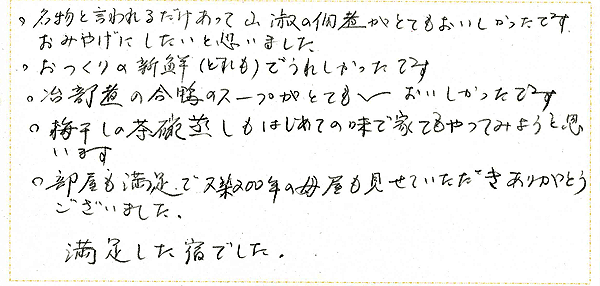 ○名物と言われるだけあって山淑の佃煮がとてもおいしかったです
おみやげにしたいと思いました
○おつくりの新鮮(どれも)でうれしかったです
○冶部煮の合鴨のスープがとても おいしかったです
○梅干しの茶碗蒸しもはじめての味で家でもやってみようと思
います
○部屋も満足で又築200年の母屋も見せていただきありがとう
ございました。
満足した宿でした。